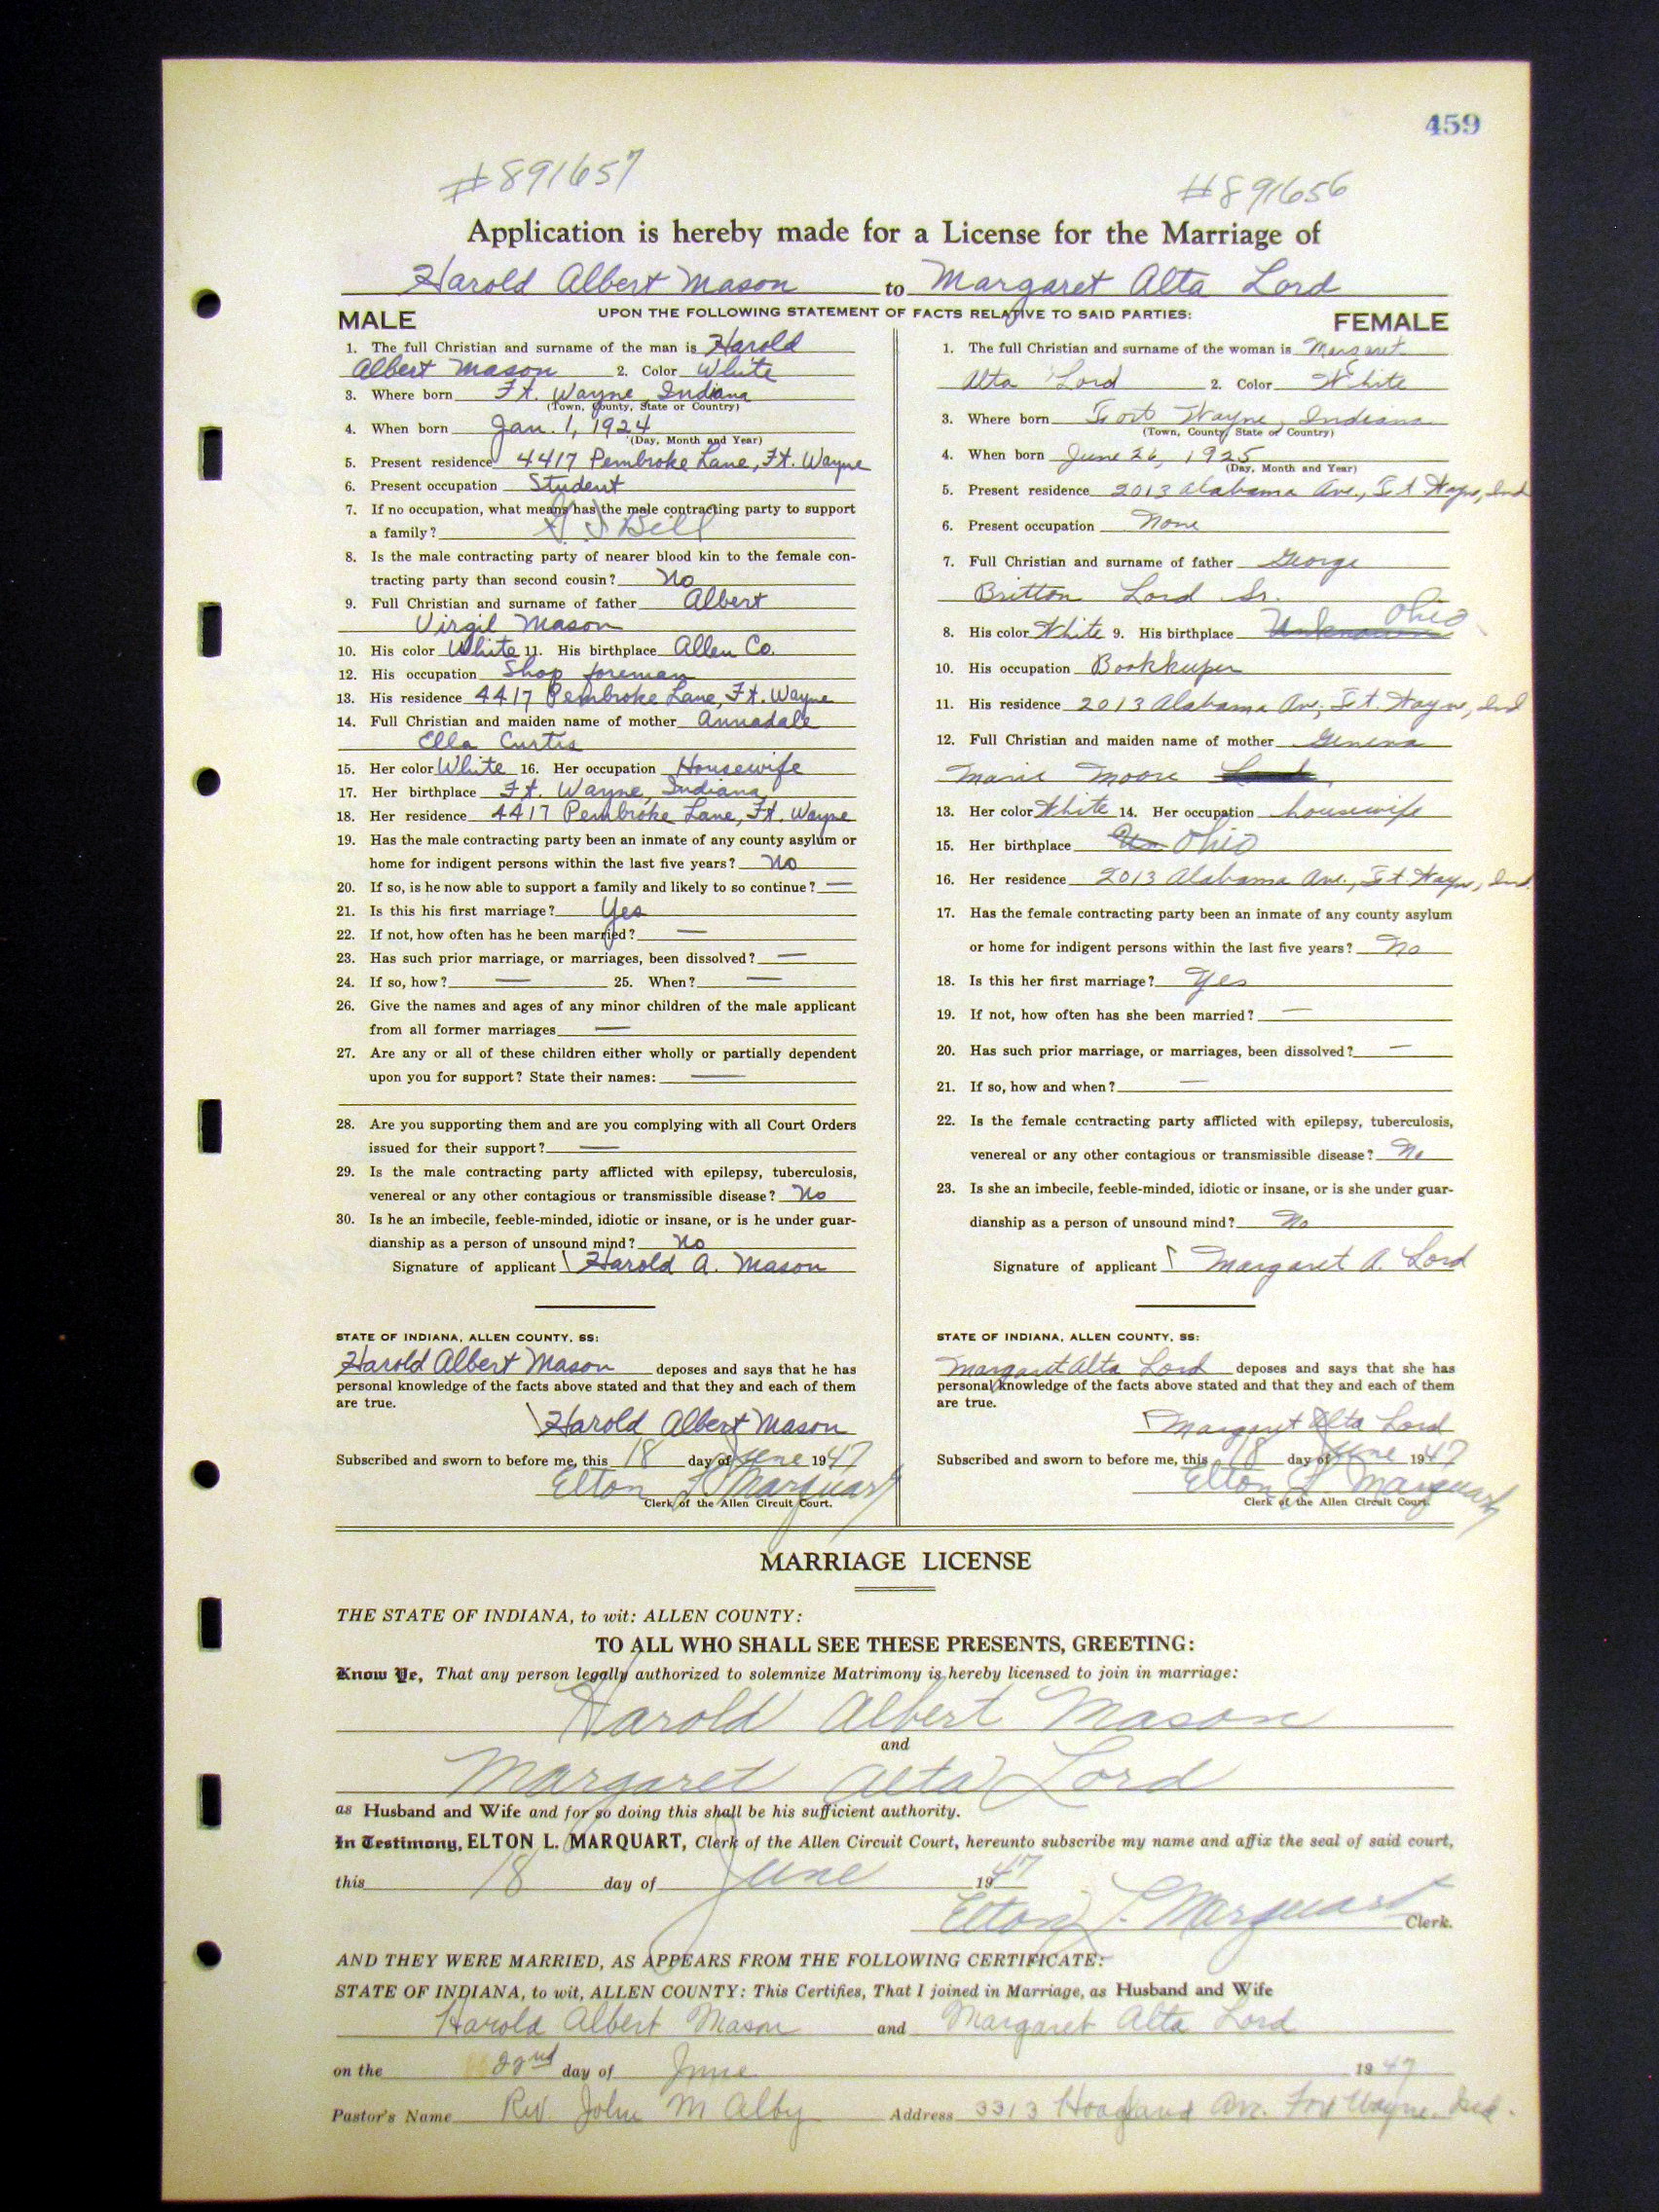 459
#891657 #891656
Application is hereby made for a License for the Marriage of
Harold Albert Mason to Margaret Alta Lord
UPON THE FOLLOWING STATEMENT OF FACTS RELATIVE TO SAID PARTIES:
MALE
1. The full Christian and surname of the man is Harold
Albert Mason 2. Color White
3. Where born Ft. Wayne, Indiana
(Town, County, State or Country)
4. When born Jan. 1, 1924
(Day, Month and Year)
5. Present residence 4417 Pembroke Lane, Ft. Wayne
6. Present occupation Student
7. If no occupation, what means has the male contracting party to support
a family? G I Bill
8. Is the male contracting party of nearer blood kin to the female con-
tracting party than second cousin? No
9. Full Christian and surname of father Albert
Virgil Mason
10. His color White 11. His birthplace Allen Co.
12. His occupation Shop foreman
13. His residence 4417 Pembroke Lane, Ft. Wayne
14. Full Christian and maiden name of mother Annadale
Ella Curtis
15. Her color White 16. Her occupation Housewife
17. Her birthplace Ft. Wayne, Indiana
18. Her residence 4417 Pembroke Lane, Ft. Wayne
19. Has the male contracting party been an inmate of any county asylum or
home for indigent persons within the last five years? No
20. If so, is he now able to support a family and likely to so continue? —
21. Is this his first marriage? Yes
22. If not, how often has he been married? —
23. Has such prior marriage, or marriages, been dissolved? —
24. If so, how? — 25. When? —
26. Give the names and ages of any minor children of the male applicant
from all former marriages —
27. Are any or all of these children either wholly or partially dependent
upon you for support? State their names: —
28. Are you supporting them and are you complying with all Court Orders
issued for their support? —
29. Is the male contracting party afflicted with epilepsy, tuberculosis,
venereal or any other contagious or transmissible disease? No
30. Is he an imbecile, feeble-minded, idiotic or insane, or is he under guar-
dianship as a person of unsound mind? No
Signature of applicant Harold A. Mason
STATE OF INDIANA, ALLEN COUNTY, SS:
Harold Albert Mason deposes and says that he has
personal knowledge of the facts above stated and that they and each of them
are true.
Harold Albert Mason
Subscribed and sworn to before me, this 18 day of June 1947
Elton L. Marquart
Clerk of the Allen Circuit Court.
FEMALE
1. The full Christian and surname of the woman is Margaret
Alta Lord 2. Color White
3. Where born Fort Wayne, Indiana
(Town, County, State or Country)
4. When born June 26, 1925
(Day, Month and Year)
5. Present residence 2013 Alabama Ave., Ft Wayne, Ind
6. Present occupation None
7. Full Christian and surname of father George
Britton Lord Sr.
8. His color White 9. His birthplace Unknown Ohio
10. His occupation Bookkeeper
11. His residence 2013 Alabama Ave, Ft. Wayne, Ind
12. Full Christian and maiden name of mother Geneva
Marie Moore
13. Her color White 14. Her occupation housewife
15. Her birthplace Un Ohio
16. Her residence 2013 Alabama Ave., Ft. Wayne, Ind.
17. Has the female contracting party been an inmate of any county asylum
or home for indigent persons within the last five years? No
18. Is this her first marriage? Yes
19. If not, how often has she been married? —
20. Has such prior marriage, or marriages, been dissolved? —
21. If so, how and when? —
22. Is the female contracting party afflicted with epilepsy, tuberculosis,
venereal or any other contagious or transmissible disease? No
23. Is she an imbecile, feeble-minded, idiotic or insane, or is she under guar-
dianship as a person of unsound mind? No
Signature of applicant Margaret A. Lord
STATE OF INDIANA, ALLEN COUNTY, SS:
Margaret Alta Lord deposes and says that she has
personal knowledge of the facts above stated and that they and each of them
are true.
Margaret Alta Lord
Subscribed and sworn to before me, this 18 day of June 1947
Elton L. Marquart
Clerk of the Allen Circuit Court.
MARRIAGE LICENSE
THE STATE OF INDIANA, to wit: ALLEN COUNTY:
TO ALL WHO SHALL SEE THESE PRESENTS, GREETING:
Know Ye, That any person legally authorized to solemnize Matrimony is hereby licensed to join in marriage:
Harold Albert Mason
and
Margaret Alta Lord
as Husband and Wife and for so doing this shall be his sufficient authority.
In Testimony, ELTON L. MARQUART, Clerk of the Allen Circuit Court, hereunto subscribe my name and affix the seal of said court,
this 18 day of June 1947
Elton L. Marquart Clerk.
AND THEY WERE MARRIED, AS APPEARS FROM THE FOLLOWING CERTIFICATE:
STATE OF INDIANA, to wit, ALLEN COUNTY: This Certifies, That I joined in Marriage, as Husband and Wife
Harold Albert Mason and Margaret Alta Lord
on the 22nd day of June 1947
Pastor's Name Rev. John M Alby Address 3313 Hoagland Ave. Fort Wayne, Ind.